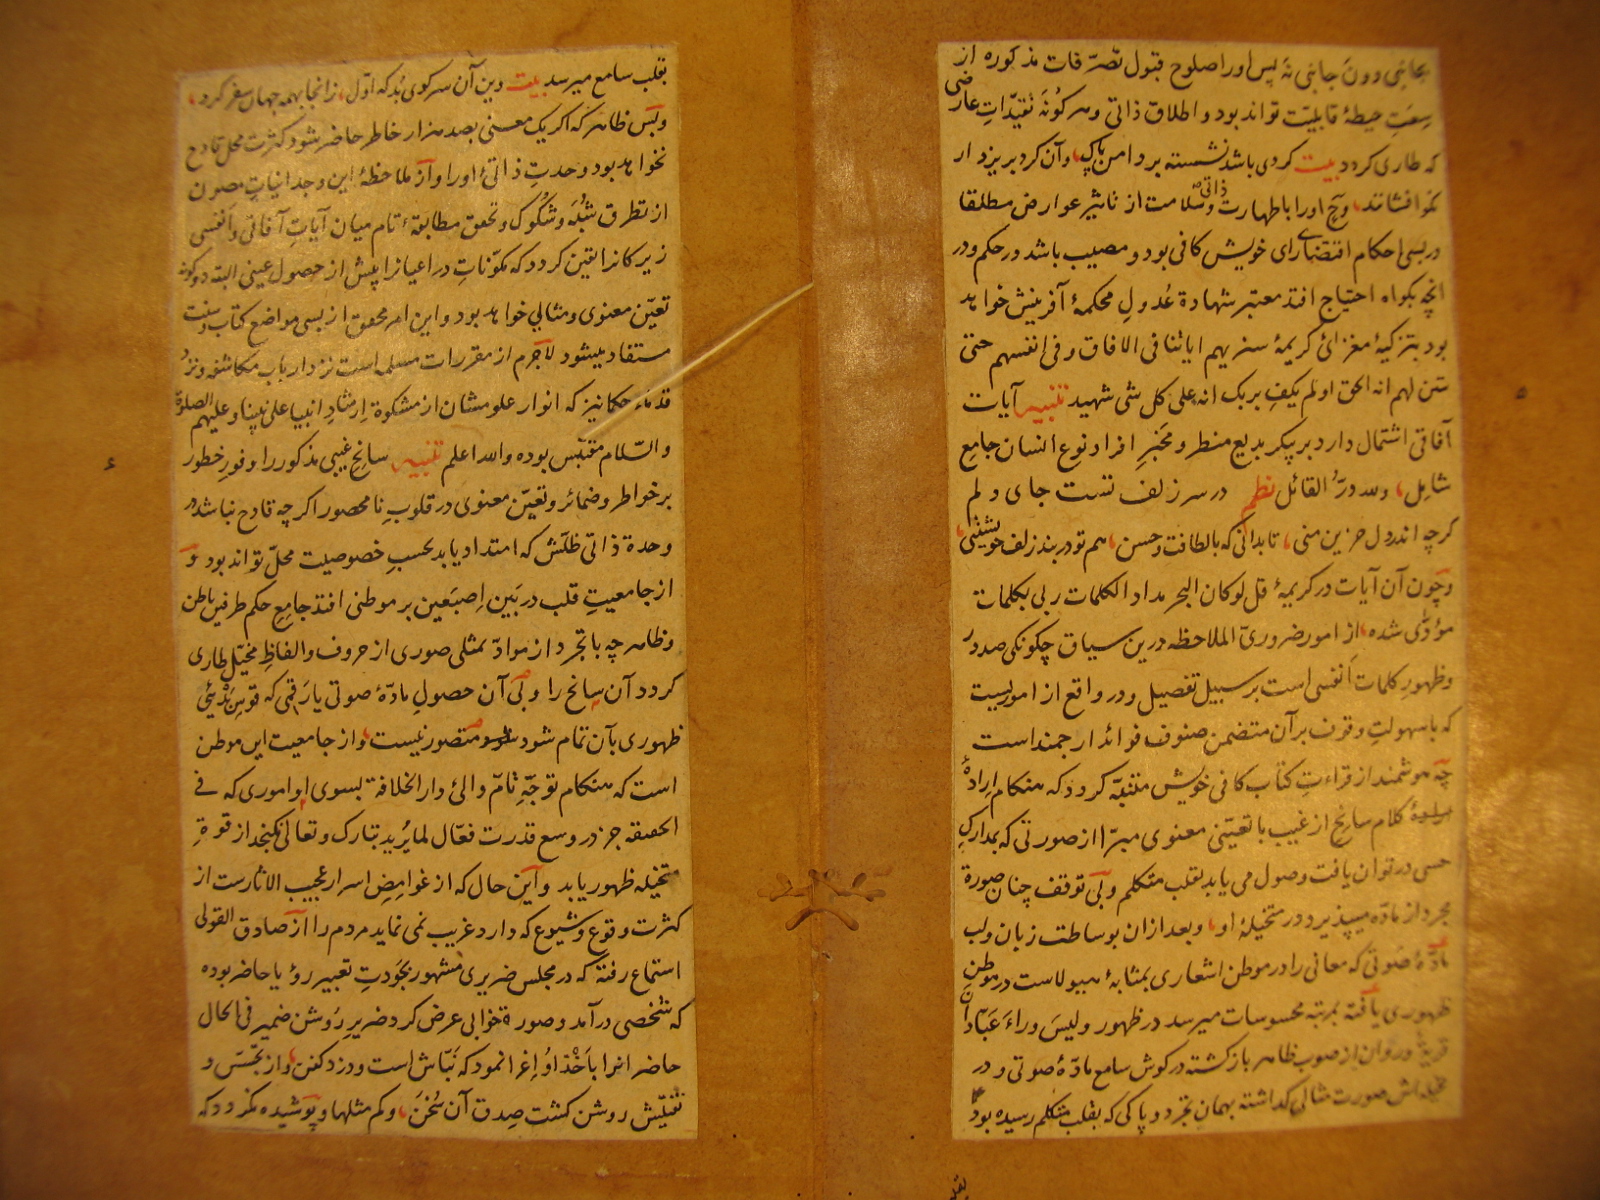 بجانبی دون جانبی نه پس او را صلوح قبول تصرّفات مذکوره از
سِعَتِ حیطهٔ قابلیّت تواند بود و اطلاق ذاتی و هر گُونَه تقیّداتِ عارضی
که طاری کردد بیت کردی باشد نشسته بر دامن پاک، وآن کرد بریزد ار
نموافشاند، وَچه اورا با طهارت ذاتی وسلامت از تاثیر عوارض مطلقا
در بسی احکام اقتضای رای خویش کافی بود و مصیب باشد در حکم ودر
انچه بکواه احتیاج افتد معتبر شهادة عُدولِ محکمهٔ آفرینش خواهد
بود بتزکیهٔ مغزائی کریمهٔ سنریهم ایاتنا فی الافاق وفی انفسهم حتی
یتبین لهم انه الحق اولم یکفِ بربک انه علی کل شی شهید تنبیه آیات
آفاقی اشتمال دارد بر پیکر بدیع منظر و مَخبَرِ افراد نوع انسان جامع
شامل، ولله درّ القائل نظم در سر زلف تست جای دلم
کرچه اندر دل حزین منی، تا بدانی که با لطافت وحسن، هم تو در بند زلف خویشتنی،
وچون آن آیات در کریمهٔ قل لو کان البحر مدادا لکلمات ربی بکلمات
مؤدّی شده، از امور ضروریّ الملاحظه درین سیاق چکونکی صدور
وظهورِ کلمات اَنفسی است بر سبیل تفصیل ودر واقع از امور یست
که با سهولتِ وقوف بر آن متضمن صنوف فوائد ارجمند است
چه هوشمند از قراءتِ کتاب کافی خویش متنبّه کردد که هنکام اِرادهٔ
کلام سانِح از غیب با تعیّنی معنوی مبرّا از صورتی که بمدارکِ
حسی در توان یافت وصول می یابد بقلب متکلم و بی توقف چنان صورة
مجرد از مادّه میپذیرد در متخیلهٔ او، وبعد ازان بوساطت زبان ولب
مادّهٔ صَوتی که معانی را در موطن اشعاری بمثابهٔ هیولاست در موطن
ظهوری یافته بمرتبه محسوسات میرسد در ظهور ولیسَ وراءَ عَبّادان
قریة ودر وان از صوب ظاهر باز کشته در کوش سامع مادّهٔ صوتی و در
متخیله اش صورت مثالی کذاشته بهمان تجرد و پاکی که بقلب متکلم رسیده بود
بقلب سامع میرسد بیت وین آن سر کوی بُد که اوّل، زانجا بهمه جهان سفر کرد،
وبَس ظاهر که اکر یک معنی بصد هزار خاطر حاضر شود کثرت محل قادح
نخواهد بود وحدتِ ذاتیٔ اورا و آز ملاحظهٔ این وجدانیاتِ مصون
از تطرق شُبَه وشُکوک وتحقق مطابقهٔ تام میان آیاتِ آفاقی واَنفسی
زیرکانرا یقین کردد که مکوّناتِ در اعیانرا پیش از حصول عینی البته دو کونه
تعیّن معنوی ومثالی خواهد بود و این امر محقق از بسی مواضع کتاب وسنت
مستفاد میشود لاجَرم از مقررات مسلما است نزد ارباب مکاشفه ونزد
قدماء حکما نیز که انوار علومشان از مشکوة اِرشادِ انبیا علی نبینا وعلیهم الصلوة
والسّلام مقتبَس بوده والله اعلم تنبیه سانِح غیبی مذکور را وفورِ خطور
بر خواطر وضمائر وتعیّن معنوی در قلوبِ نامحصور اکر چه قادح نباشد در
وحدة ذاتی ظلّش که امتداد یابد بحسبِ خصوصیت محلّ تواند بود وَ
از جامعیتِ قلب در بَینِ اِصبَعین بر موطنی افتد جامِعِ حکم طرفین باطن
وظاهر چه با تجرد از موادّ بمثلی صوری از حروف والفاظِ مخیّل طاری
کردد آن سانح را و بی آن حصولِ مادّهٔ صوتی یا رَقمی که قوسِ نَدْیّئی
ظهوری بآن تمام شود متصور نیست، واز جامعیت این موطن
است که هنکام توجّهِ تامّ والئ دار الخلافة بسوی او اموری که فی
الحقیقه جز در وسع قدرت فعّال لما یُرید تبارک وتعالی نکنجد از قوةِ
متخیله ظهور یابد واَین حال که از غوامِضِ اسرار عجیب الاثارست از
کثرت وقوع وشیوع که دارد غریب نمی نماید مردم را از صادق القولی
استماع رفته که در مجلس ضریری مشهور بجَودتِ تعبیر رؤیا حاضر بوده
که شخصی درآمد وصورة خوابی عرض کرد ضریرِ رَوشن ضمیر فی الحال
حاضرانرا باَخْذ او اِغرا نمود که نَبّاش است ودزد کفن، واز تجّسَس و
تفتیش روشن کشت صِدق آن سُخن، وکم مثلها و پَوشیده نکردد که